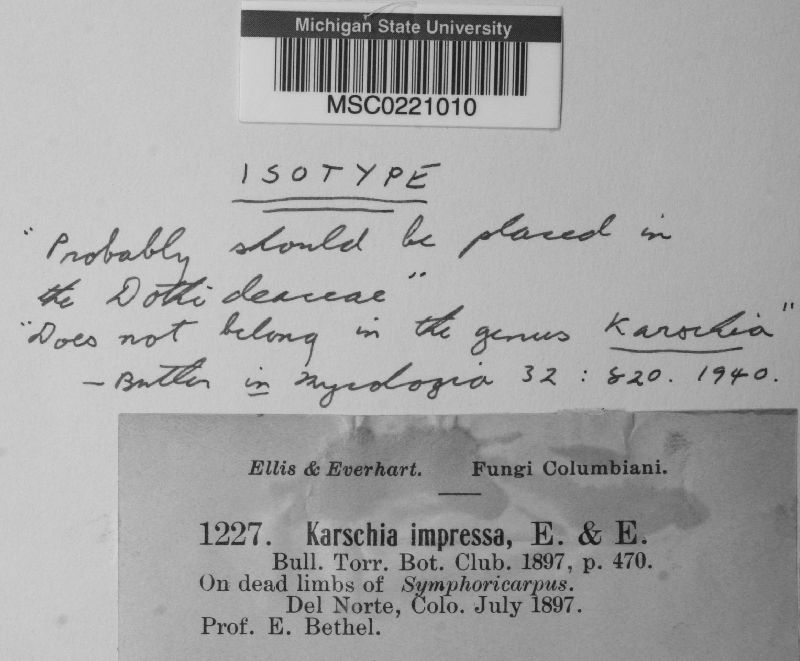 Michigan State University
MSC0221010
ISOTYPE
"Probably should be placed in
the Dothideaceae"
"Does not belong in the genus Karschia"
– Butler in Mycologia 32 : 820. 1940.
Ellis & Everhart. Fungi Columbiani.
1227. Karschia impressa, E. & E.
Bull. Torr. Bot. Club. 1897, p. 470.
On dead limbs of Symphoricarpus.
Del Norte, Colo. July 1897.
Prof. E. Bethel.